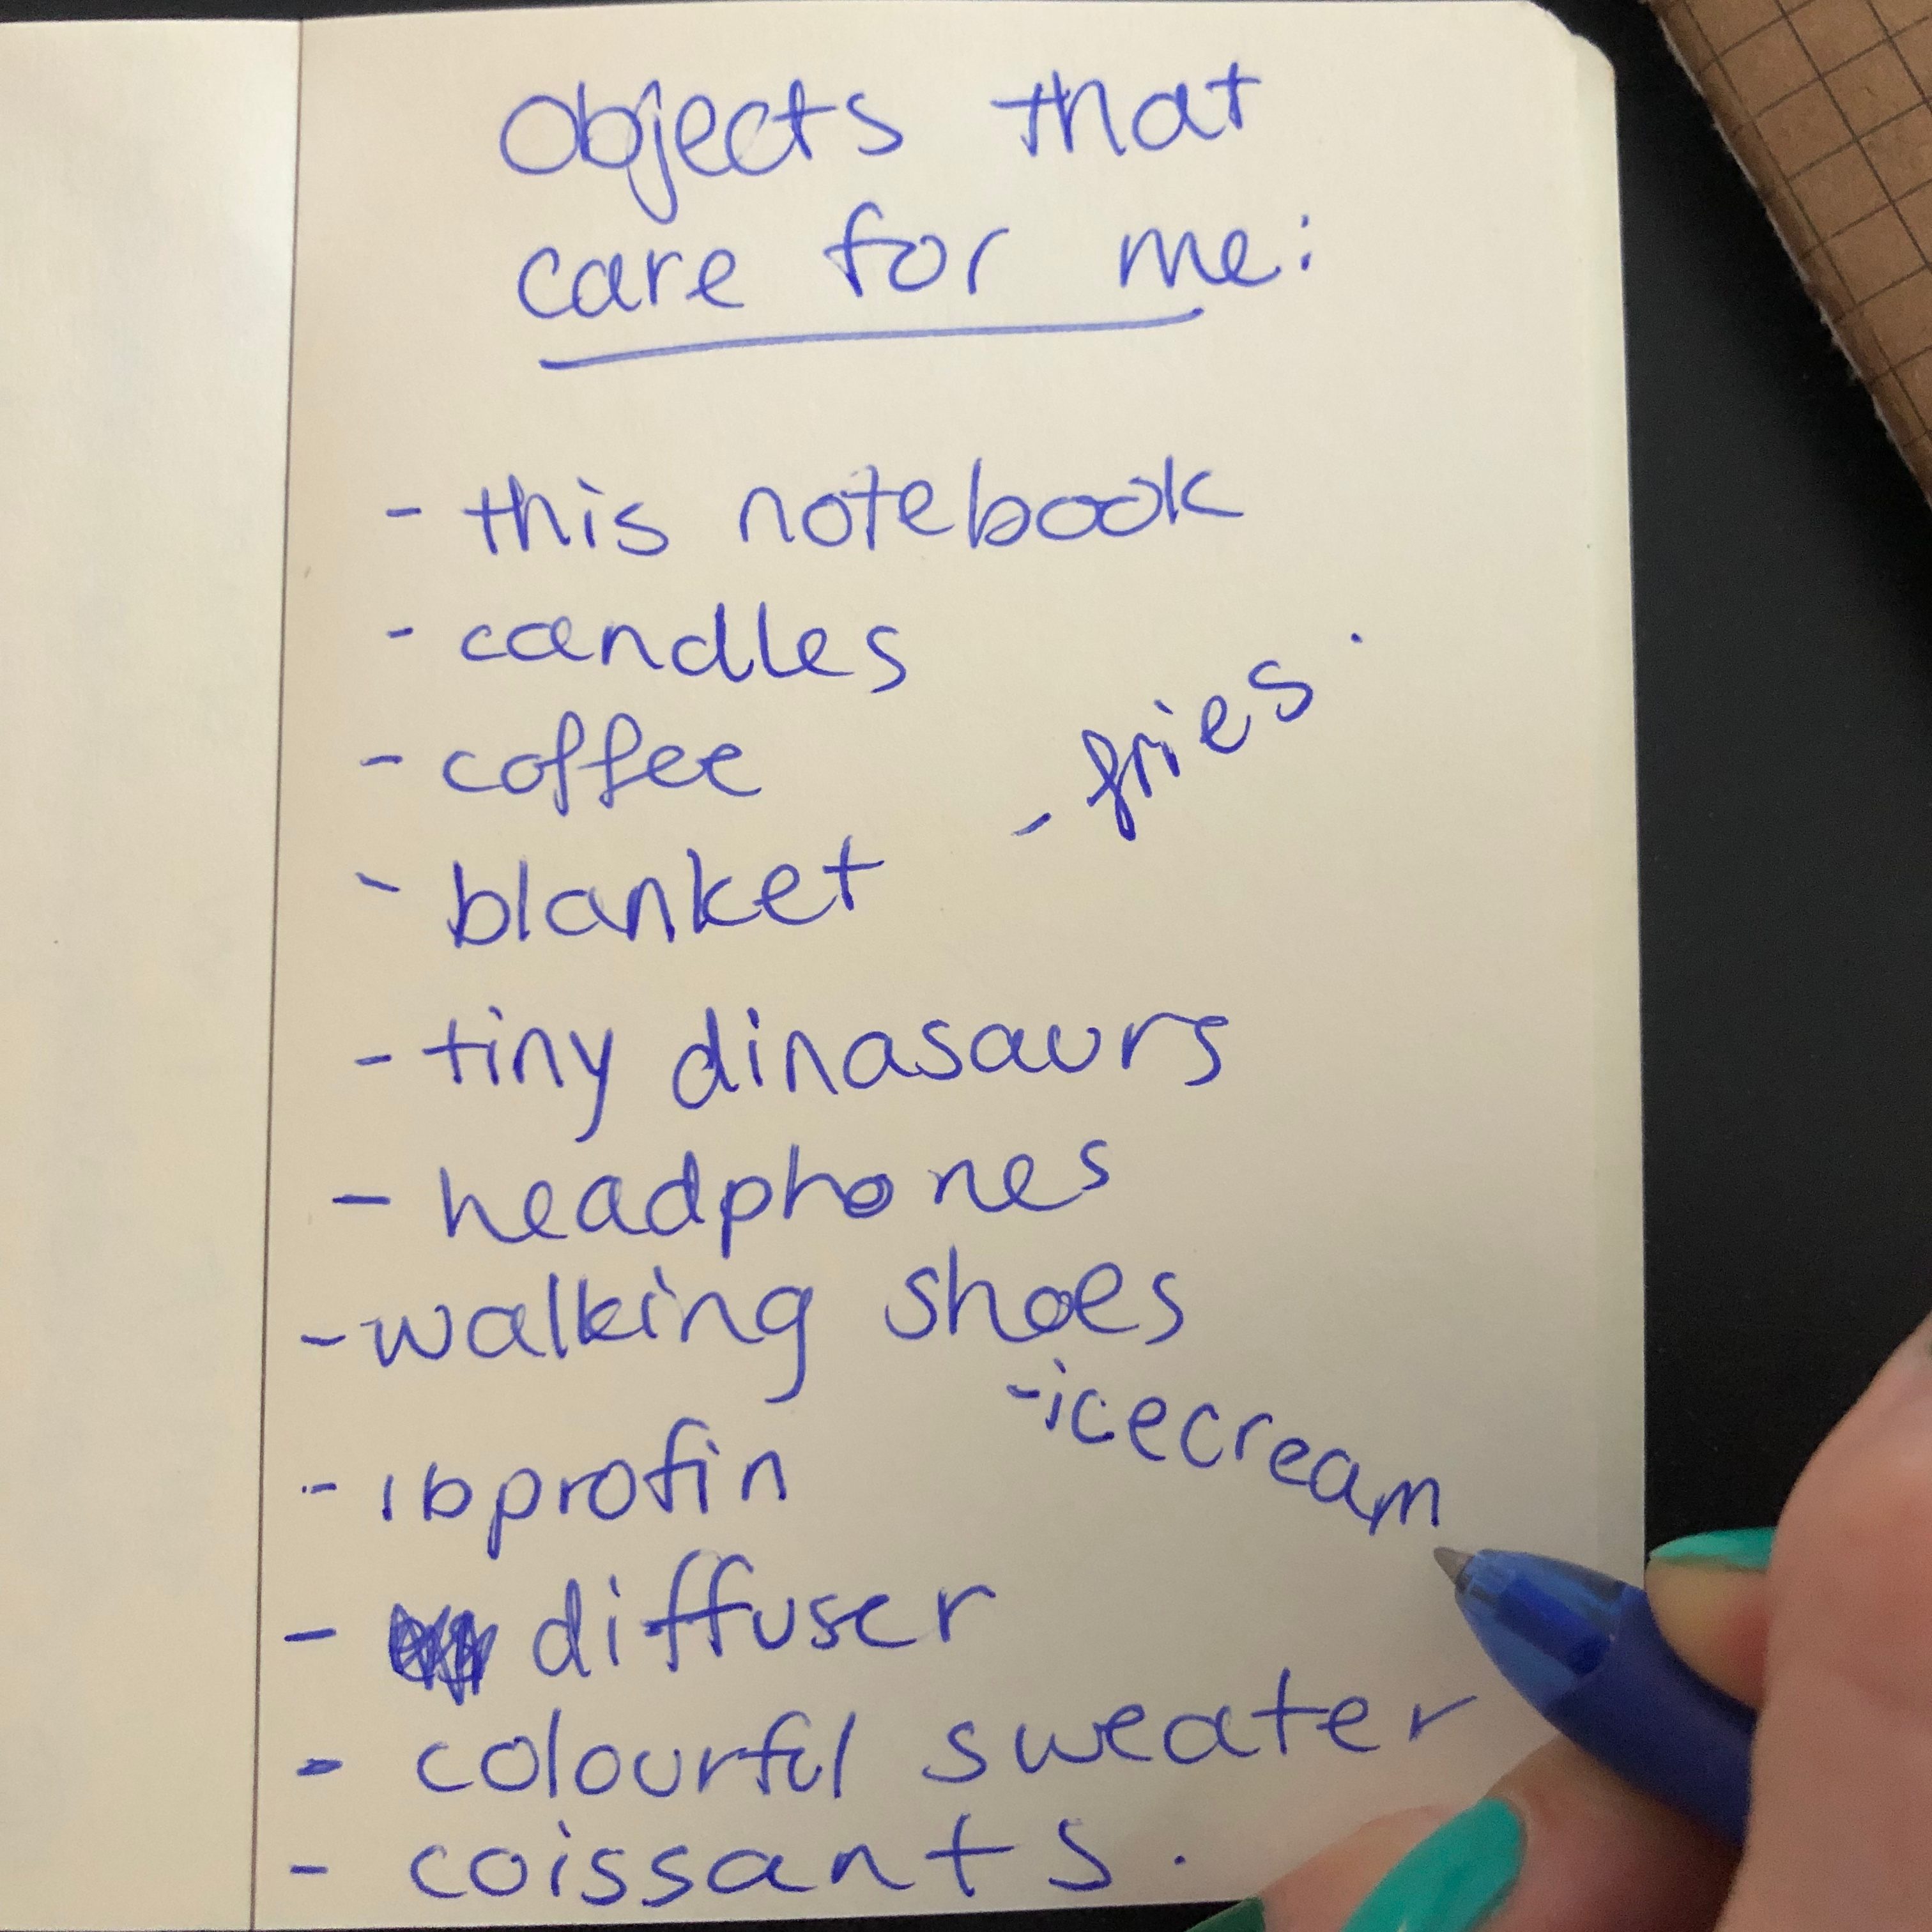 Objects that
care for me:
- this notebook
- candles
- coffee
- fries.
- blanket
- tiny dinasaurs
- headphones
- walking shoes
- icecream
- ibprofin
- diffuser
- colourful sweater
- coissants.